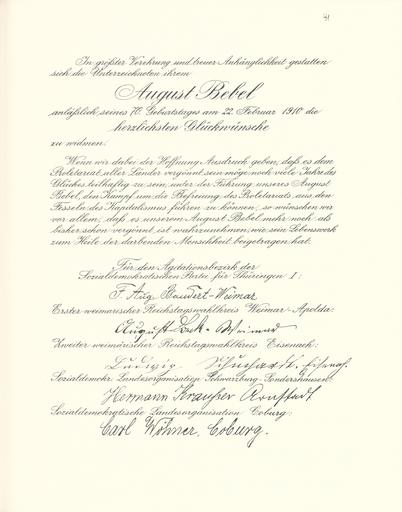 41
In größter Verehrung und treuer Anhänglichkeit gestatten
sich die Unterzeichneten ihrem
August Bebel
anläßlich seines 70. Geburtstages am 22. Februar 1910 die
herzlichsten Glückwünsche
zu widmen.
Wenn wir dabei der Hoffnung Ausdruck geben, daß es dem
Proletariat aller Länder vergönnt sein möge noch viele Jahre des
Glückes teilhaftig zu sein, unter der Führung unseres August
Bebel, den Kampf um die Befreiung des Proletariats aus den
Fesseln des Kapitalismus führen zu können, so wünschen wir
vor allem, daß es unserem August Bebel mehr noch als
bisher schon vergönnt ist wahrzunehmen, wie sein Lebenswerk
zum Heile der darbenden Menschheit beigetragen hat.
Für den Agitationsbezirk der
Sozialdemokratischen Partei für Thüringen I:
F. Aug. Baudert-Weimar
Erster weimarischer Reichstagswahlkreis Weimar-Apolda:
August Beck-Weimar
Zweiter weimarischer Reichstagswahlkreis Eisenach:
Ludwig Schuchardt, Eisenach.
Sozialdemokr. Landesorganisation Schwarzburg-Sondershausen:
Hermann Krausser Arnstadt
Sozialdemokratische Landesorganisation Coburg:
Carl Wöhner, Coburg.